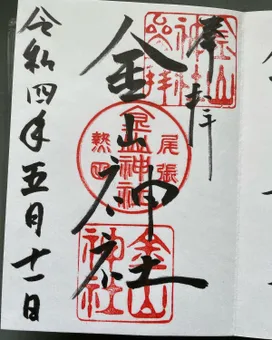 奉拝
金山
神社
参拝
金山神社
尾張
金山神社
熱田
金山
神社
令和四年五月十一日